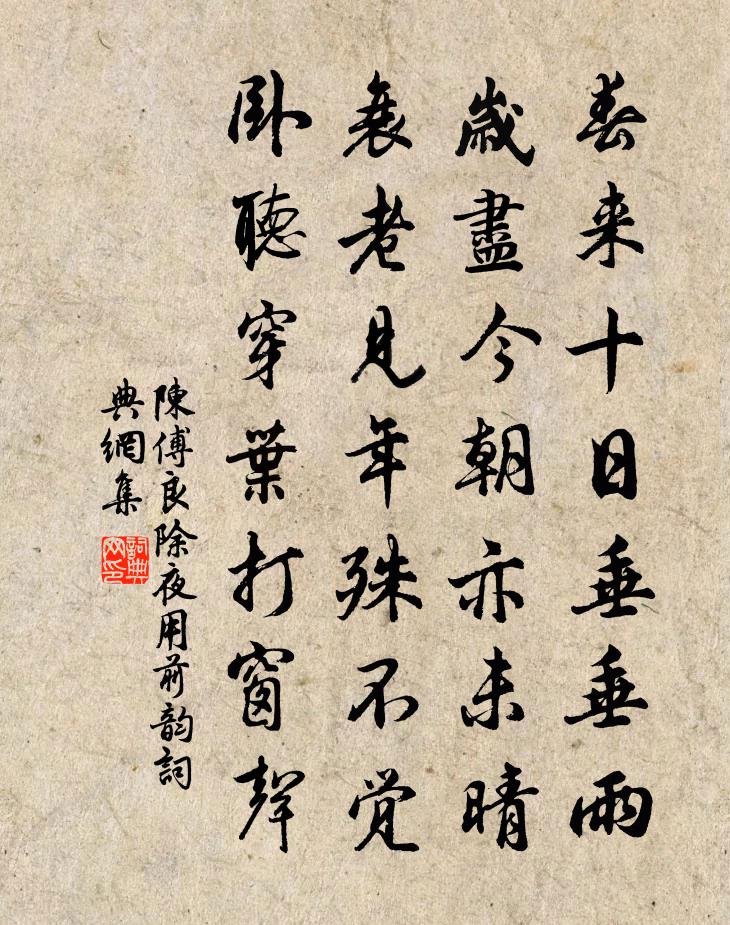 春来十日垂垂雨
歲盡今朝亦未晴
衰老見年殊不覚
卧聽穿葉打窗聲
陳傅良除夜用前韵詞
典網集
詞典
网印